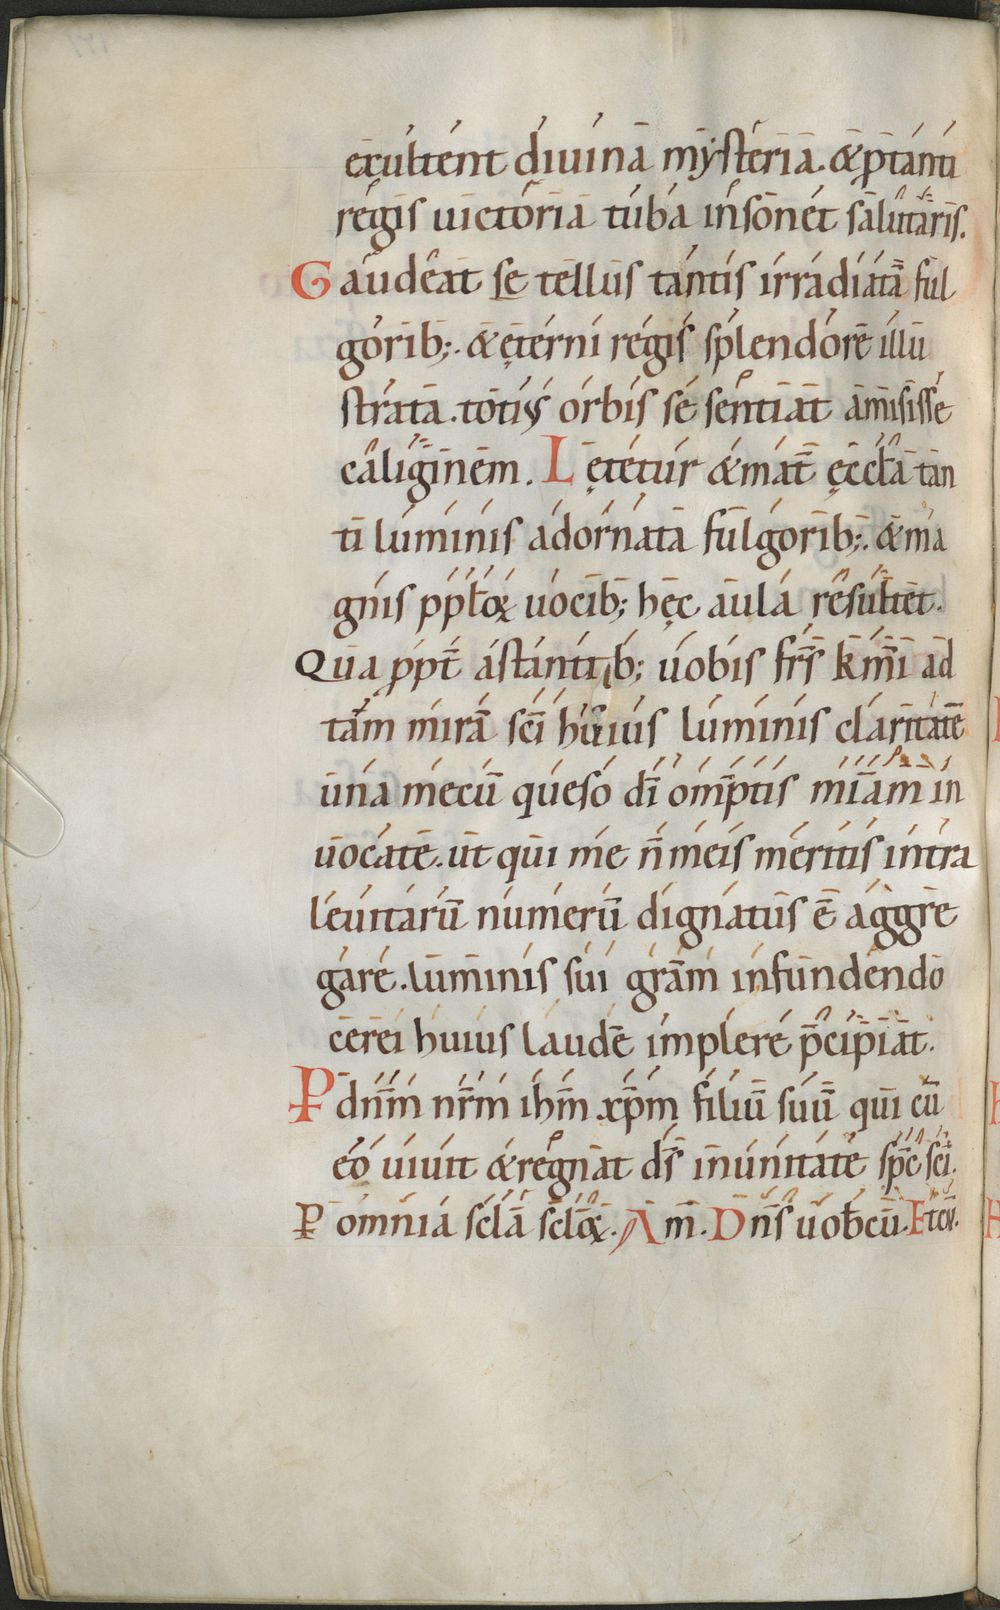 exultent diuina mysteria. & p̄ tanti
regis uictoria tuba insonet salutaris.
Gaudeat se tellus tantis irradiata ful
gorib;. & ęterni regis splendore illu
strata. totius orbis se sentiat amisisse
caliginem. Lętetur & mat̄ ęccła tan
ti luminis adornata fulgorib;. & ma
gnis pp̄łoꝝ uocib; hęc aula resultet.
Qua ppt̄ astantib; uobis fr̄s km̄i ad
tam mirā sc̄i huius luminis claritatē
una mecū queso dī om̄ptis mīam in
uocate. ut qui me n̄ meis meritis intra
leuitarū numerū dignatus ē aggre
gare. luminis sui grām infundendo
cerei huius laudē implere p̄cipiat.
P dn̄m nr̄m ihm̄ xp̄m filiū suū qui cū
eo uiuit & regnat ds̄ in unitate sp̄c sc̄i.
P omnia scła scłoꝝ. Am̄. Dn̄s uobcū. Et cū.